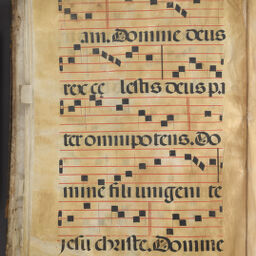 am. Domine deus
rex cę lestis deus pa
ter omnipotens. Do
mine fili unigeni te
jesu christe. Domine